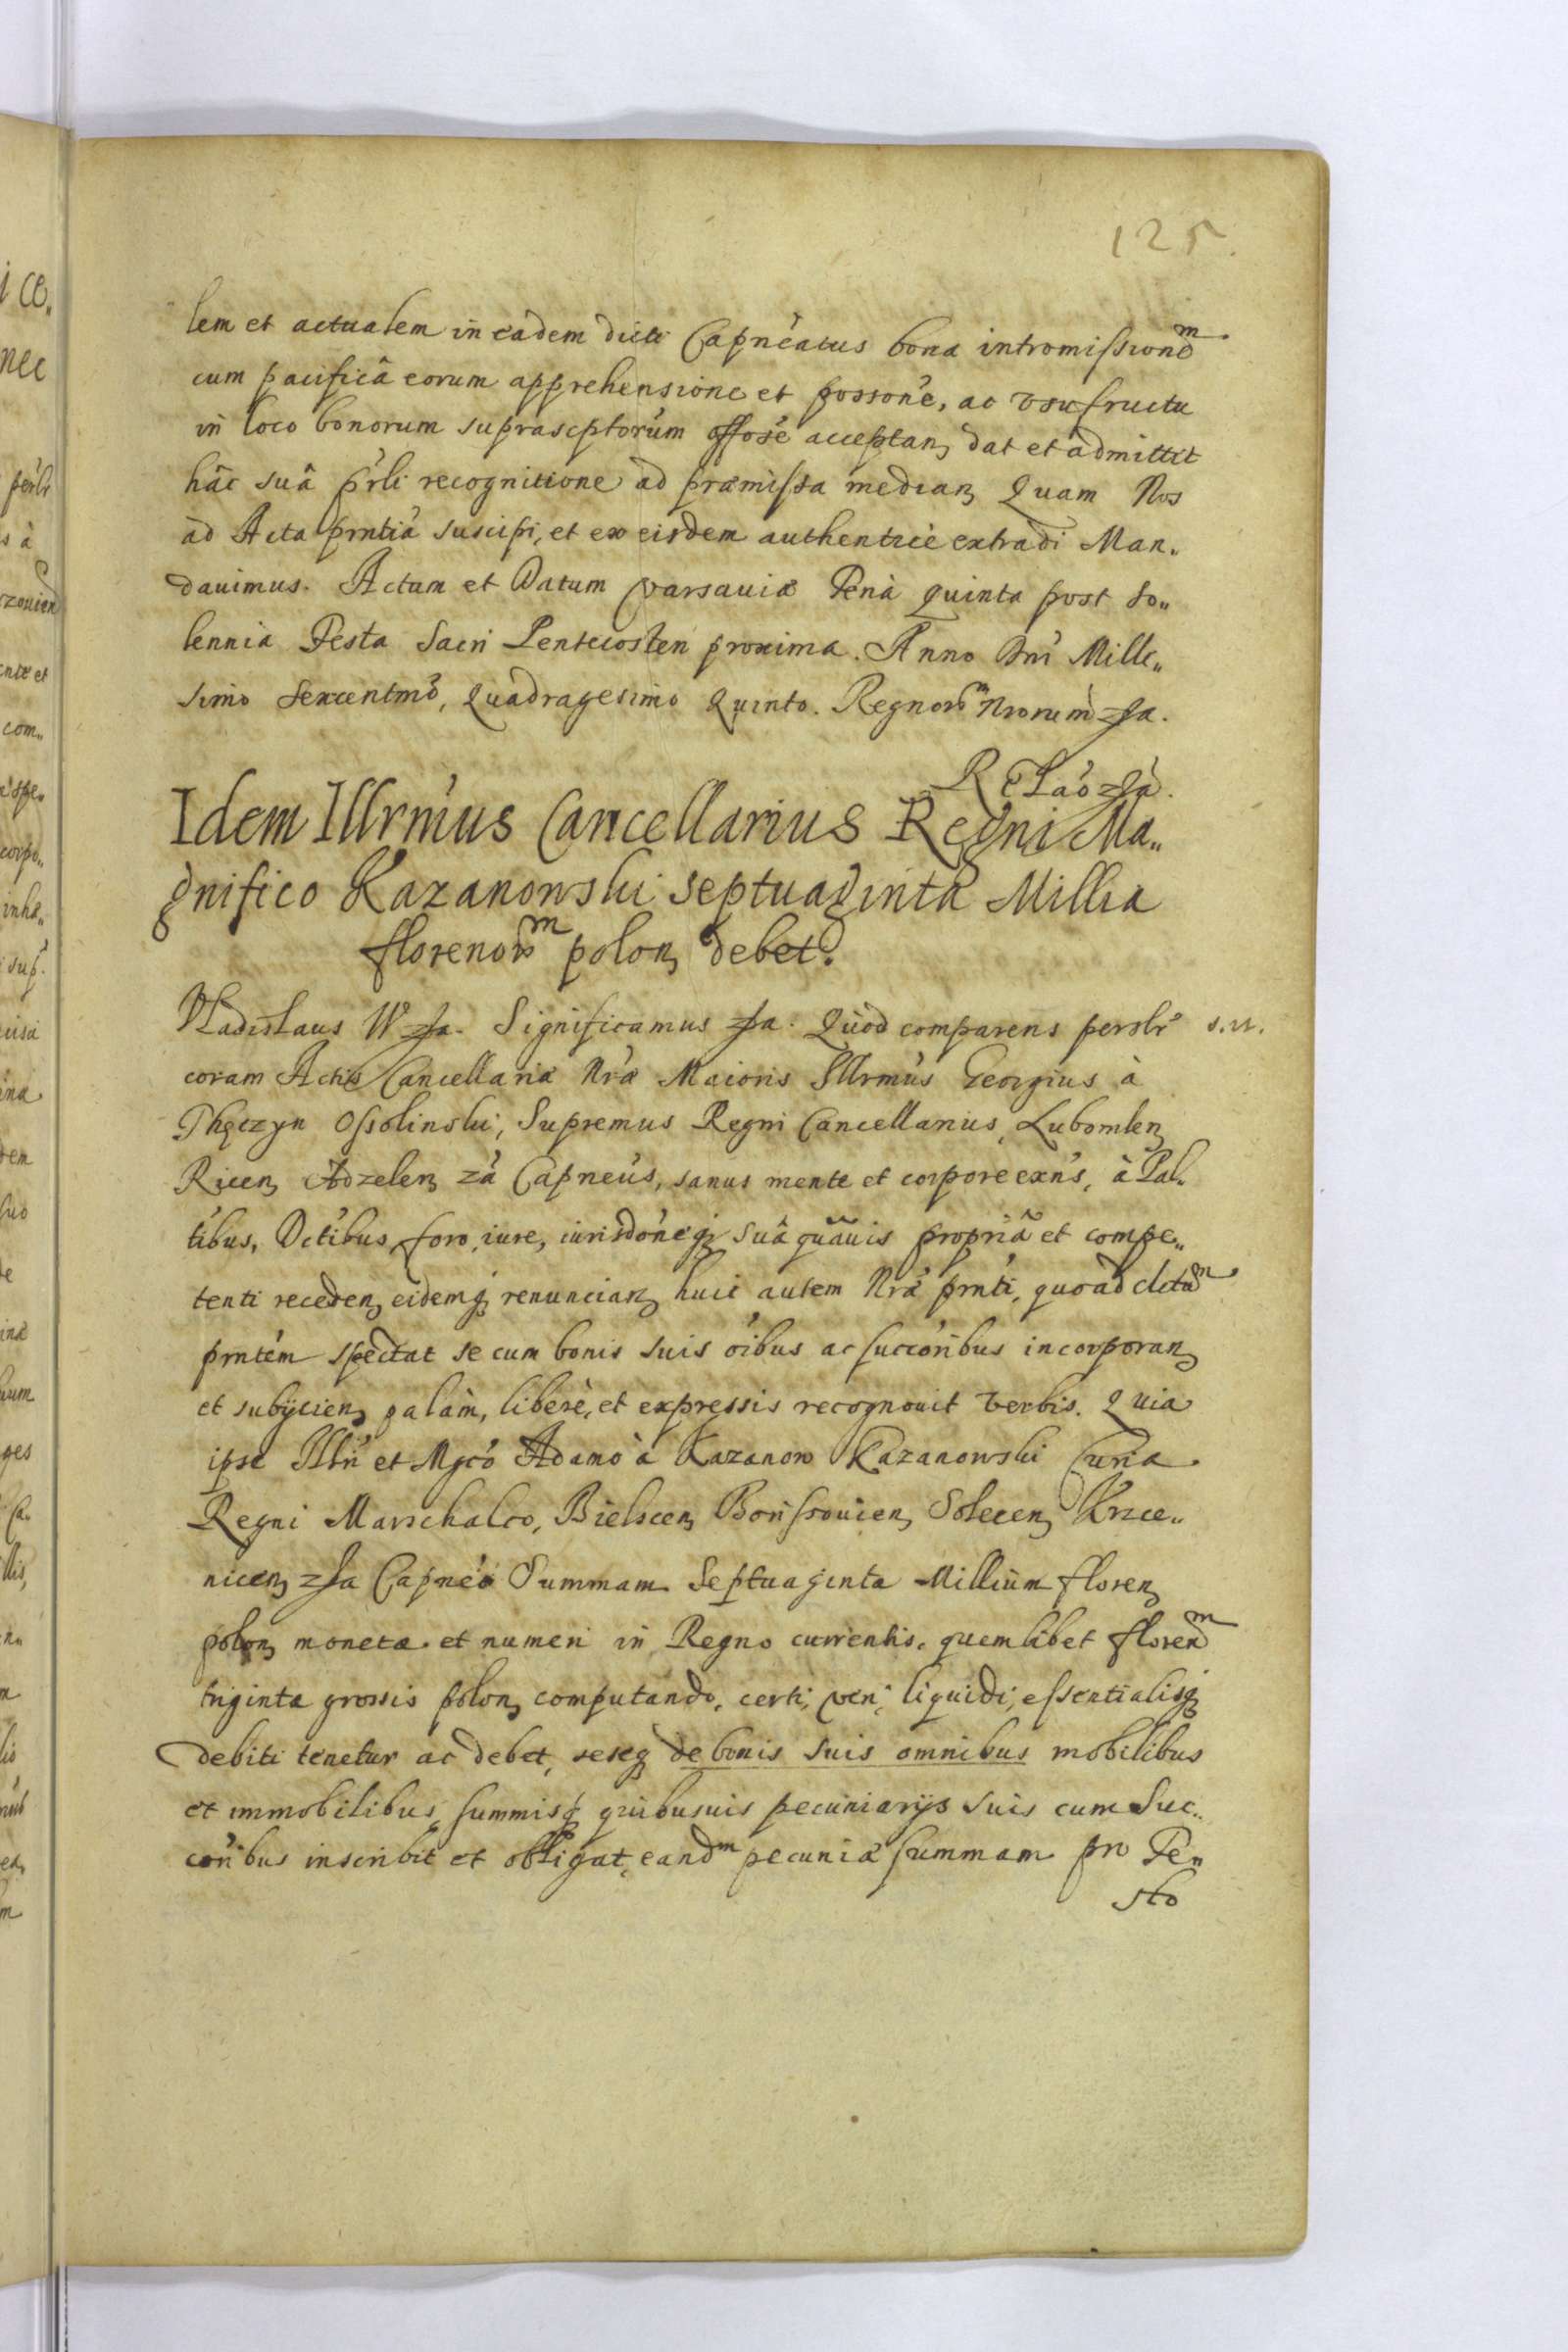 125.
lem et actualem in eâdem dicti Capnéatus bona intromissionẽm
cum pacificâ eorum apprehensione et possoné, ac vsufructu
in loco bonorum suprascptorum acceptan, dat et admittit
hâc suâ pr̃li recognitione ad præmissa median, Quam Nos
ad Acta prntia suscipi, et ex eisdem authenticè extradi Man„
dauimus. Actum et Datum Varsauiæ Feria Quinta post so„
lennia Festa Sacri Pentecosten proxima. Anno Dni Mille„
simo Sexcentmo, Quadragesimo Quinto. Regnorm Nrorum zsa.
Relao zsa.
Idem Illrmus Cancellarius Regni Ma„
gnifico Kazanowski septuaginta Millia
florenorm polon, debet.
Vladislaus IV zsa. Significamus zsa. Quod comparens perslr s.n.
coram Actis Cancellariæ Nræ Maioris Illrmus Georgius à
Thęczyn Ossolinski, Supremus Regni Cancellarius, Lubomlen,
Ricen, Adzelen, za Capneus, sanus mente et corpore exns, à Pal„
tibus, Dctibus foro, iure, iurisdoneq; suâ quãuis propriâ et compe„
tenti receden, eidemq; renuncian, huic autem Nræ prnti, quoad
prntem spectat se cum bonis suis oibus ac succoribus incorporan,
et subijcien, palàm, liberè, et expressis recognouit verbis. Quia
ipse Illri et Mgco Adamo à Kazanow Kazanowski Curiæ
Regni Marschalco, Bielscen, Borissouien, Solecen, Krzce„
nicen, zsa Capneo Summam Septuaginta Millium floren,
polon, monetæ et numeri in Regno currentis, quemlibet florenm
triginta grossis polon, computando, certi, veri, liquidi, essentialisq;
debiti tenetur ac debet, seseq; de bonis suis omnibus mobilibus
et immobilibus, summisq; quibusuis pecuniarijs suis cum Suc„
coribus inscribit et obligat, eandm pecuniæ summam pro Fe„
sto